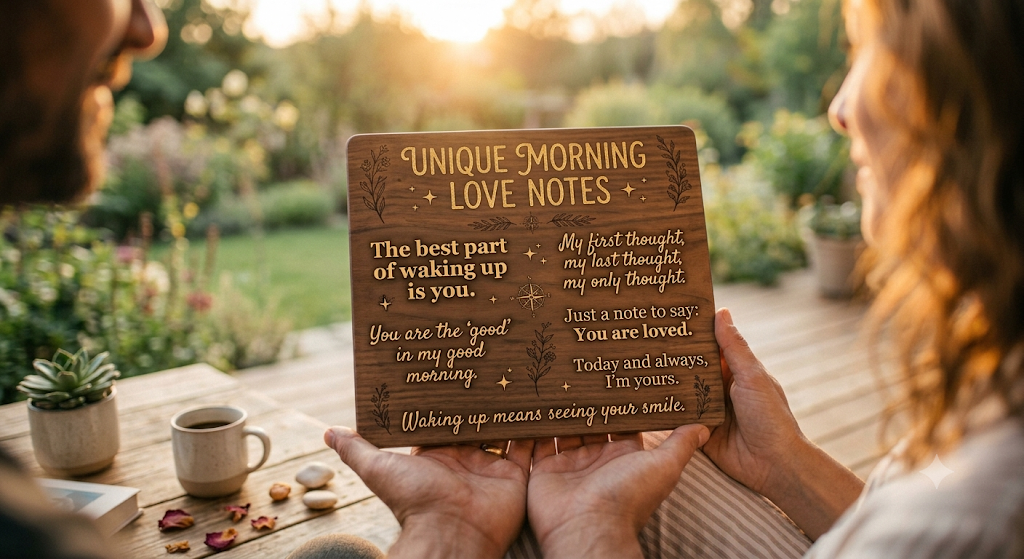 UNIQUE MORNING
LOVE NOTES
The best part
of waking up
is you.
My first thought,
my last thought,
my only thought.
You are the ‘good’
in my good
morning.
Just a note to say:
You are loved.
Today and always,
I'm yours.
Waking up means seeing your smile.